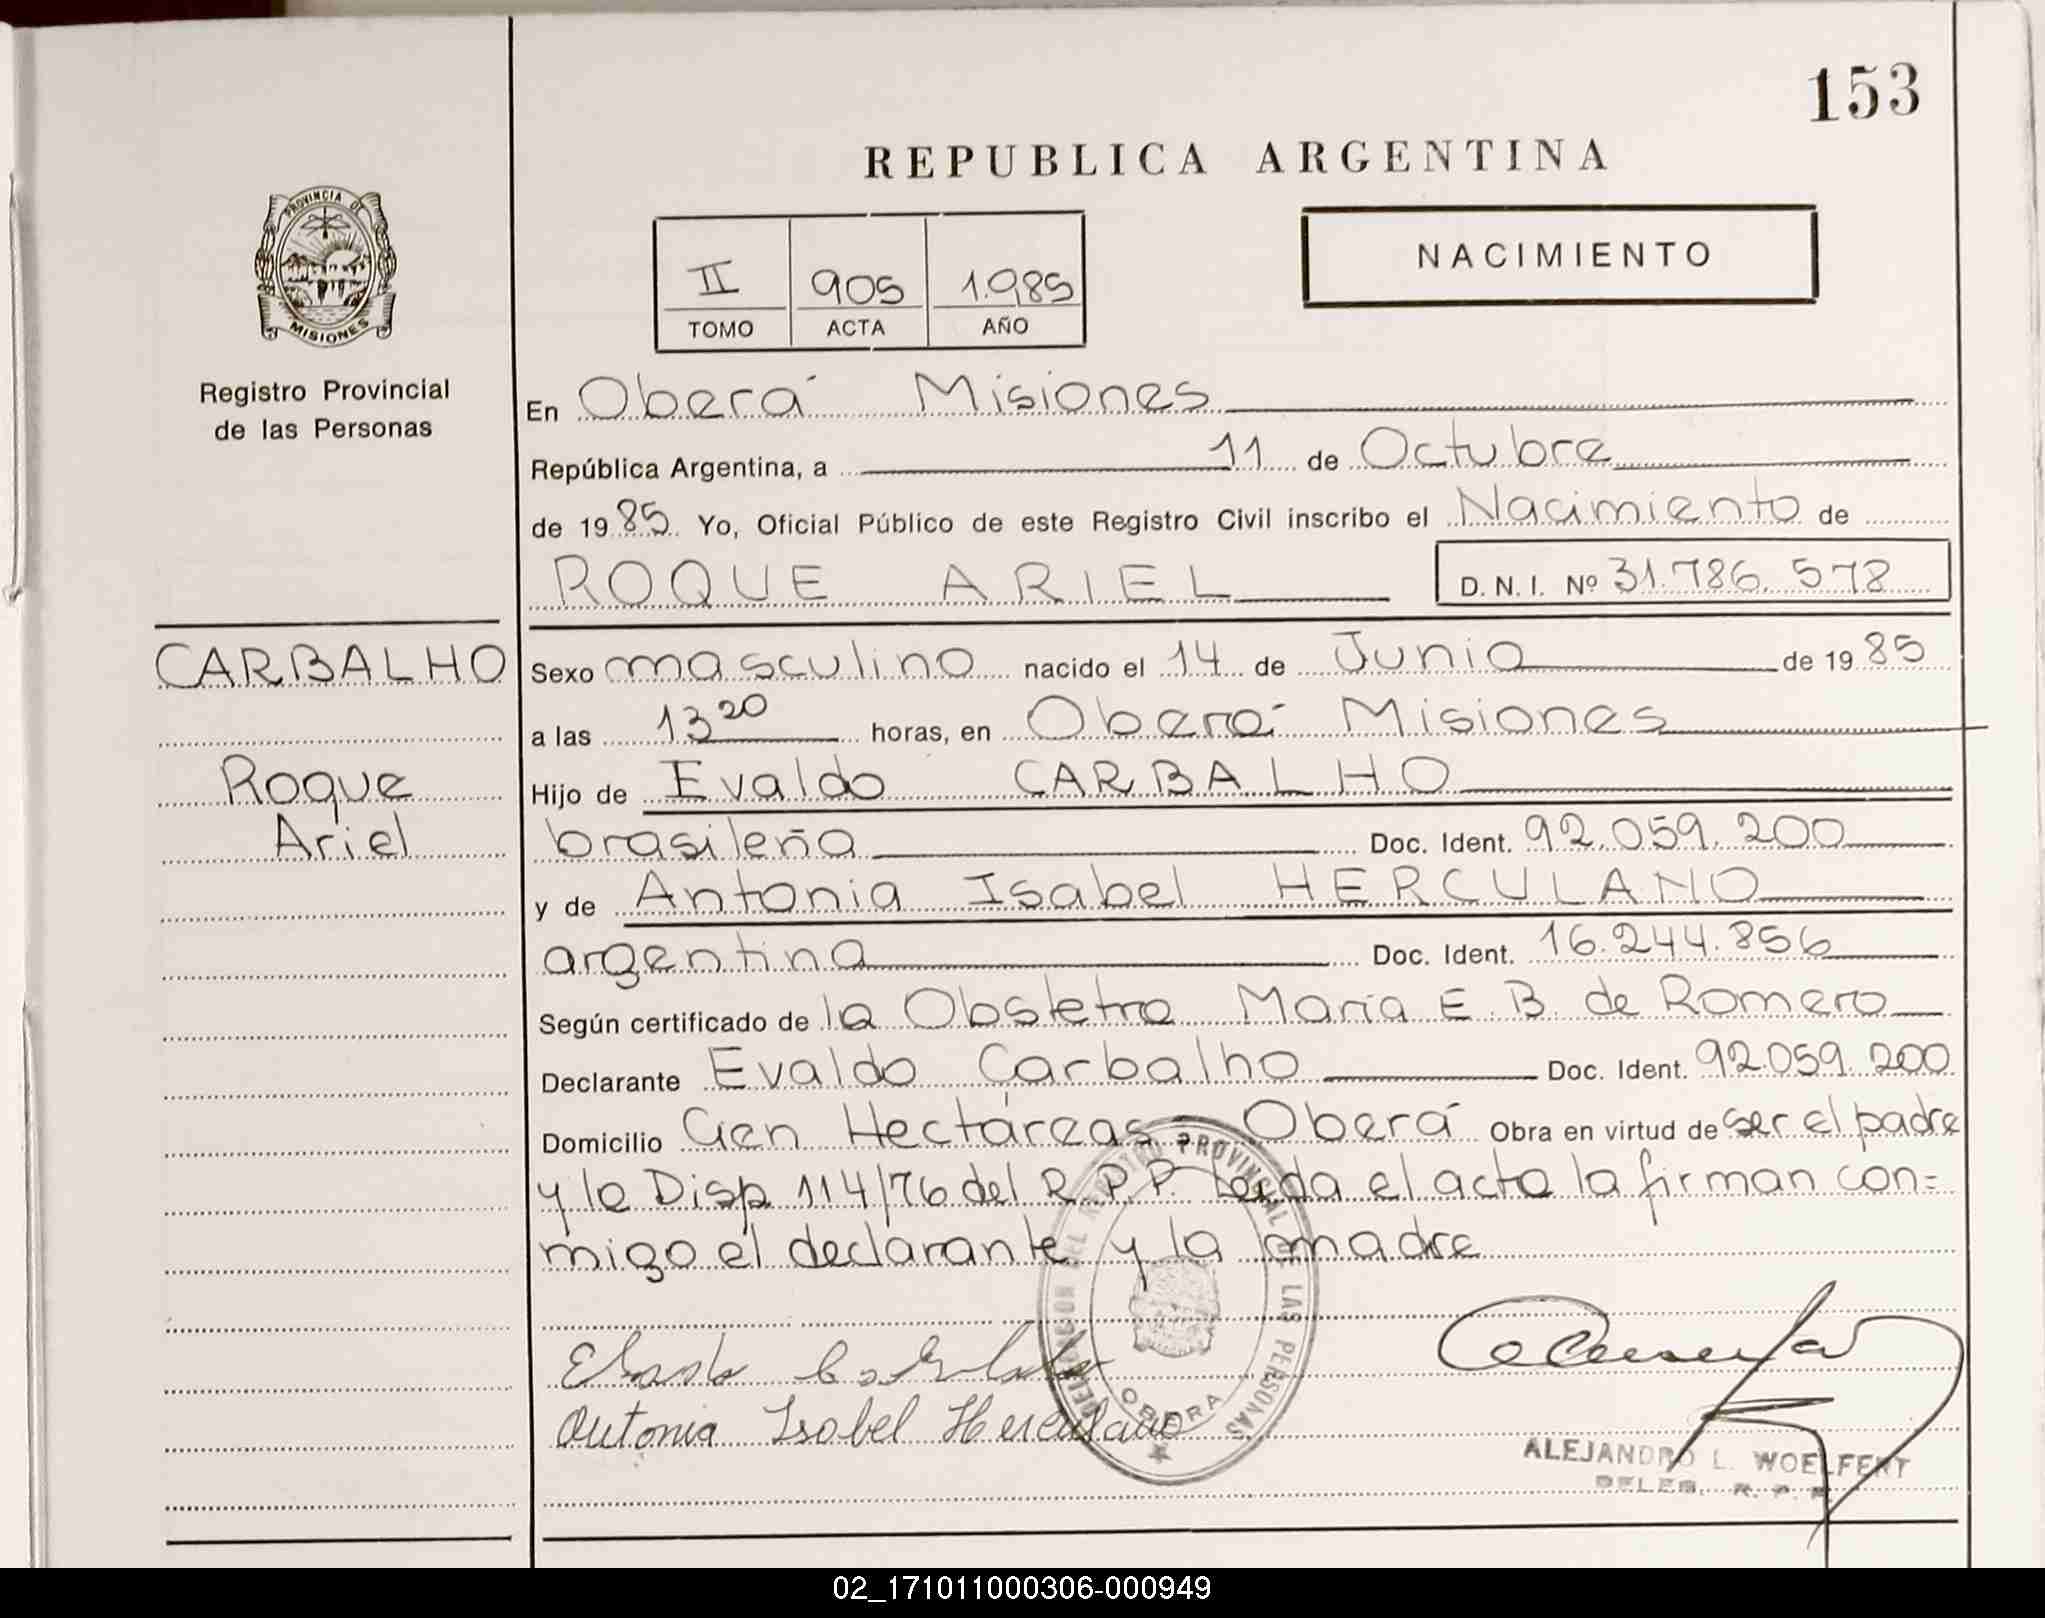 153
REPUBLICA ARGENTINA
PROVINCIA DE
MISIONES
Registro Provincial
de las Personas
II 905 1.985
TOMO ACTA AÑO
NACIMIENTO
En Oberá Misiones
República Argentina, a 11 de Octubre
de 19 85. Yo, Oficial Público de este Registro Civil inscribo el Nacimiento de
ROQUE ARIEL D. N. I. Nº 31.786.578
CARBALHO
Roque
Ariel
Sexo masculino nacido el 14 de Junio de 19 85
a las 13 20 horas, en Oberá Misiones
Hijo de Evaldo CARBALHO
brasileña Doc. Ident. 92.059.200
y de Antonia Isabel HERCULANO
argentina Doc. Ident. 16.244.856
Según certificado de la Obstetra María E. B. de Romero
Declarante Evaldo Carbalho Doc. Ident. 92.059.200
Domicilio Cien Hectáreas Oberá Obra en virtud de ser el padre
y la Disp 114/76 del R.P.P. Leída el acta la firman con=
migo el declarante y la madre
DELEGACION DEL REGISTRO PROVINCIAL DE LAS PERSONAS
OBERA
Antonia Isabel Herculano
ALEJANDRO L. WOELFERT
DELEG. R. P. P.
02_171011000306-000949